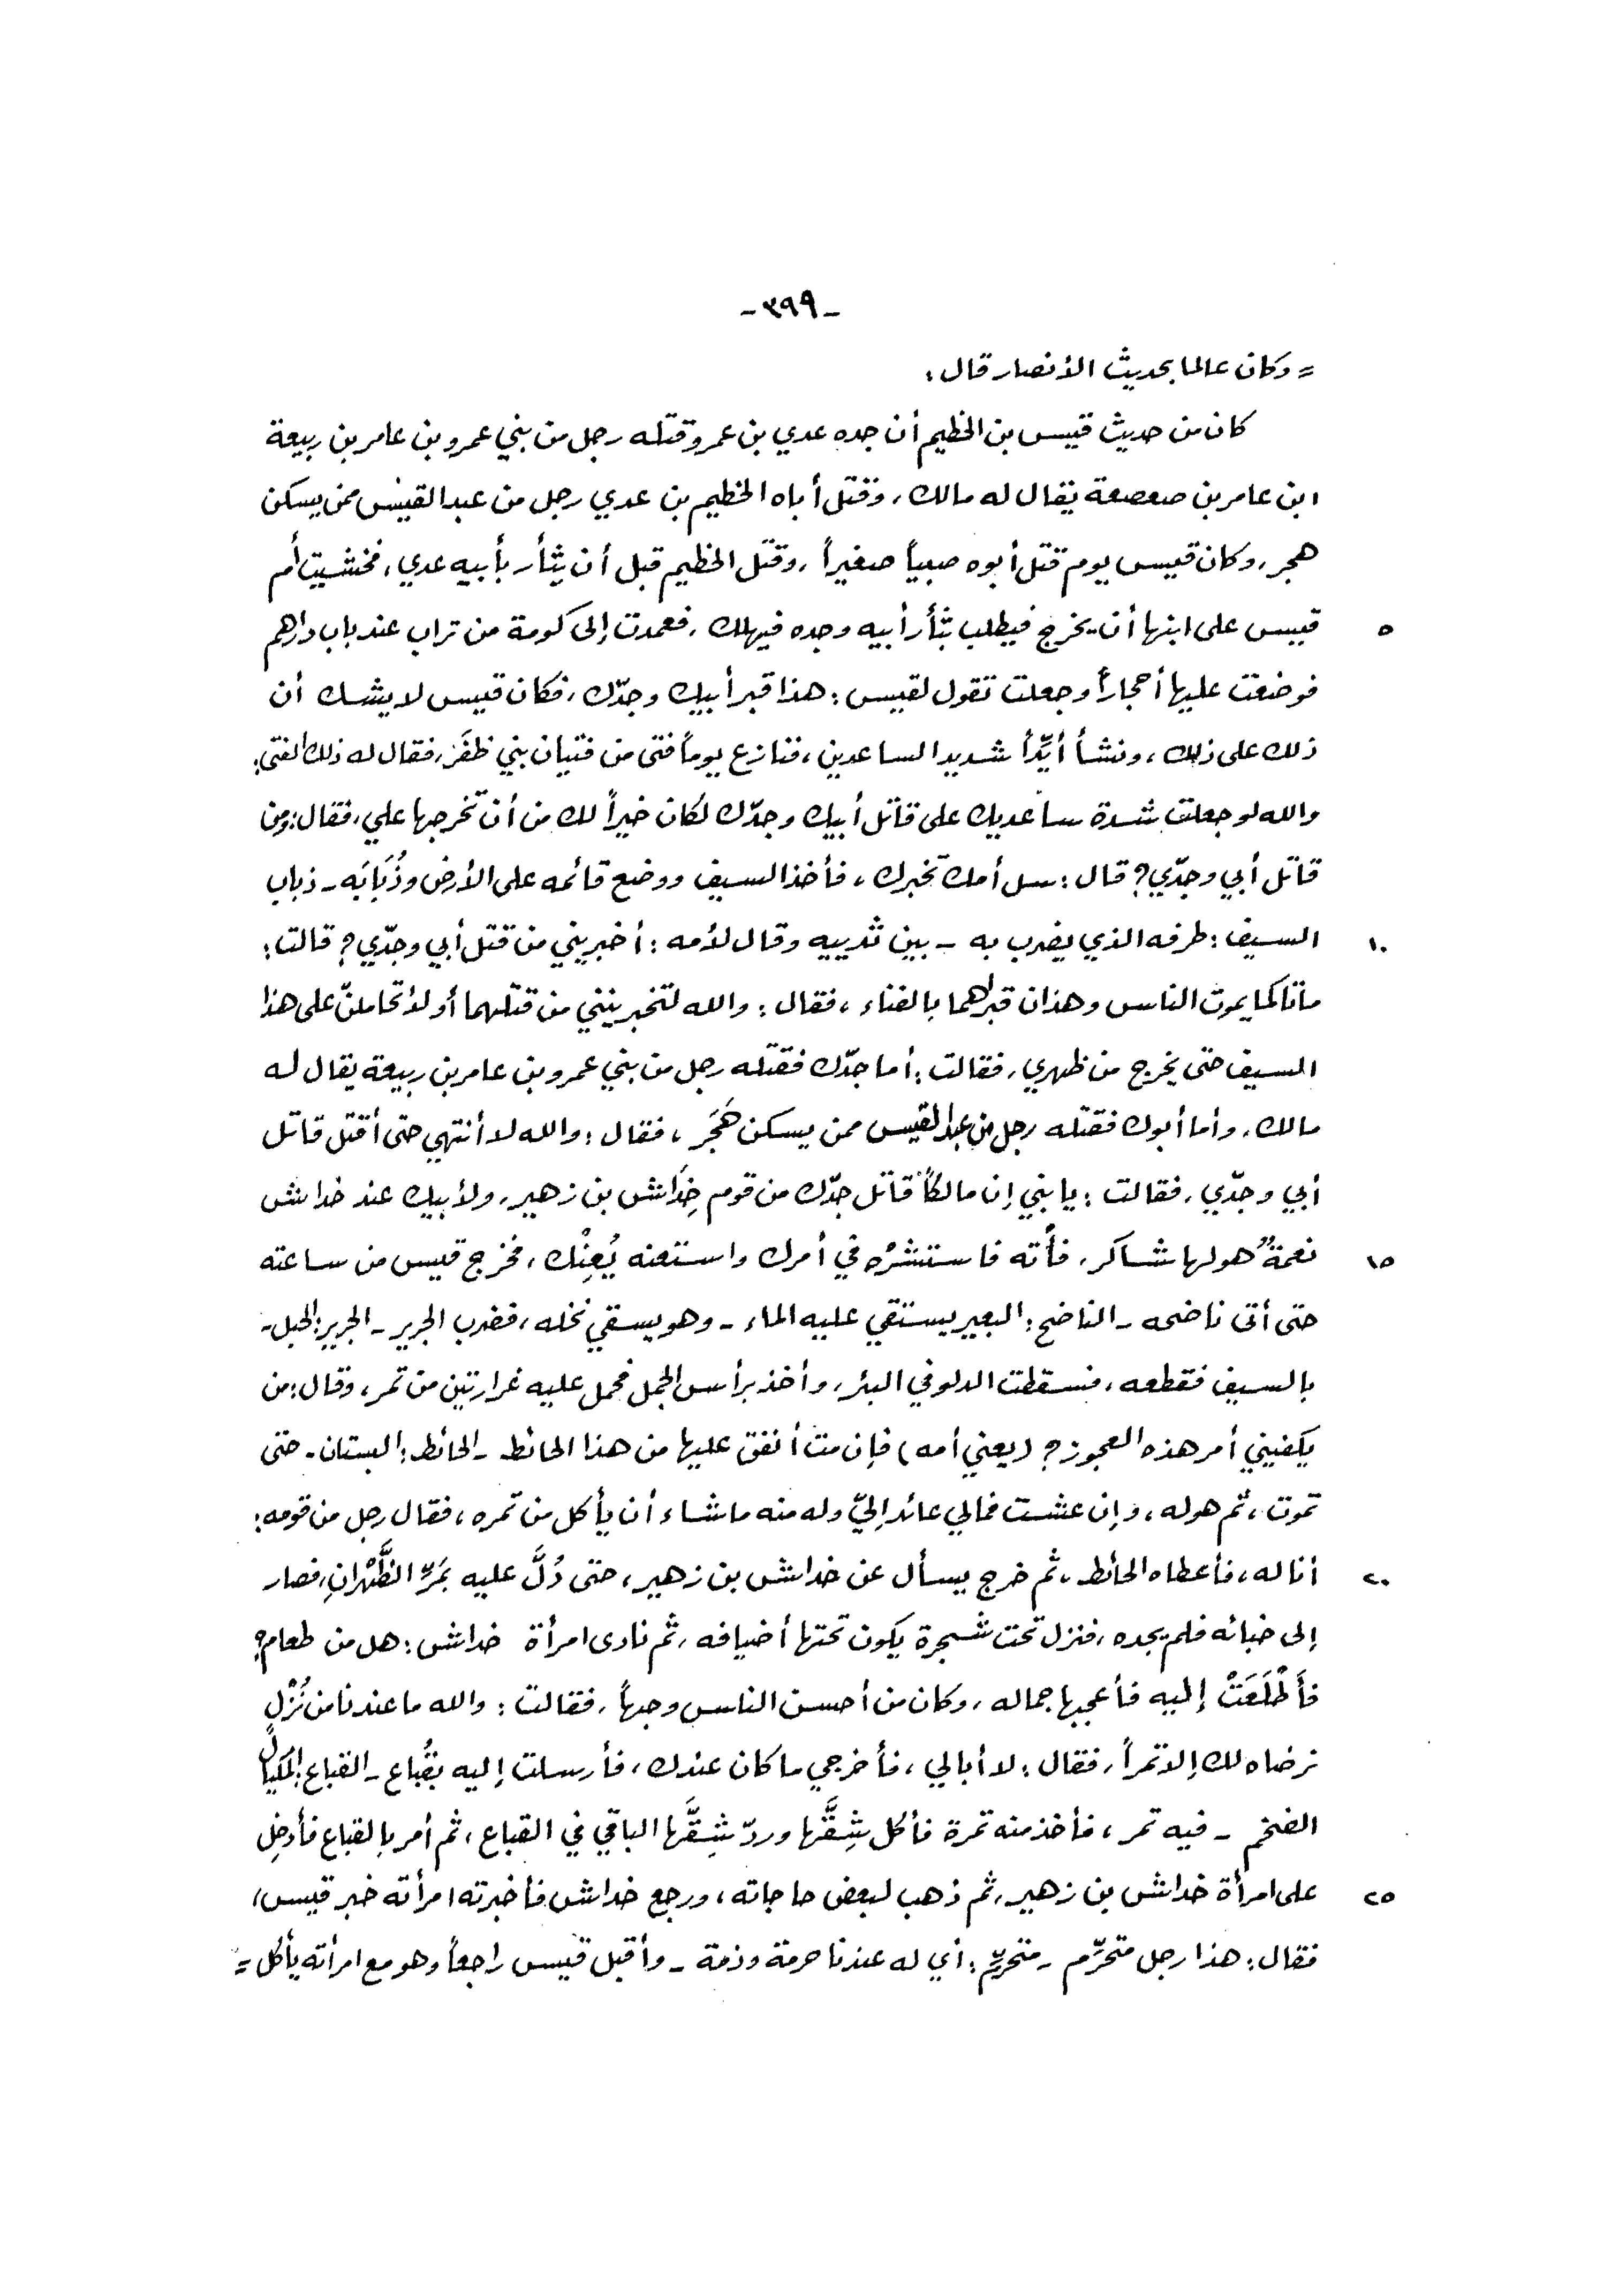 -٣٩٩-
= وكان عالما بحديث الأنصار قال:
كان من حديث قيس بن الخطيم أن جده عدي بن عمرو قتله رجل من بني عمرو بن عامر بن ربيعة
ابن عامر بن صعصعة يقال له مالك، وقتل أباه الخطيم بن عدي رجل من عبد القيس ممن يسكن
هجر، وكان قيس يوم قتل أبوه صبياً صغيراً، وقتل الخطيم قبل أن يثأر بأبيه عدي، فخشيت أم
٥ قيس على ابنها أن يخرج فيطلب بثأر أبيه وجده فيهلك، فعمدت إلى كومة من تراب عند باب دارهم
فوضعت عليها أحجاراً وجعلت تقول لقيس: هذا قبر أبيك وجدّك، فكان قيس لا يشك أن
ذلك على ذلك، ونشأ أيِّداً شديد الساعدين، فنازع يوماً فتى من فتيان بني ظفَر، فقال له ذلك الفتى:
والله لو جعلت شدة ساعديك على قاتل أبيك وجدّك لكان خيراً لك من أن تخرجها علي، فقال: ومن
قاتل أبي وجدّي؟ قال: سل أمك تخبرك، فأخذ السيف ووضع قائمه على الأرض وذُبَابَه - ذباب
١٠ السيف: طرفه الذي يضرب به - بين ثدييه وقال لأمه: أخبريني من قتل أبي وجدّي؟ قالت:
ماتا كما يموت الناس وهذان قبراهما بالفناء، فقال: والله لتخبرينني من قتلهما أو لأتحاملنّ على هذا
السيف حتى يخرج من ظهري، فقالت: أما جدّك فقتله رجل من بني عمرو بن عامر بن ربيعة يقال له
مالك، وأما أبوك فقتله رجل من عبد القيس ممن يسكن هَجَر، فقال: والله لا أنتهي حتى أقتل قاتل
أبي وجدّي، فقالت: يا بني إن مالكاً قاتل جدّك من قوم خِدَاش بن زهير، ولأبيك عند خداش
١٥ نعمةٌ هو لها شاكر، فأته فاستشرْه في أمرك واستعنه يُعِنْك، فخرج قيس من ساعته
حتى أتى ناضحه - الناضح: البعير يستقي عليه الماء - وهو يسقي نخله، فضرب الجرير - الجرير: الحبل -
بالسيف فقطعه، فسقطت الدلو في البئر، وأخذ برأس الجمل فحمل عليه غرارتين من تمر، وقال: من
يكفيني أمر هذه العجوز؟ (يعني أمه) فإن مت أنفق عليها من هذا الحائط - الحائط: البستان - حتى
تموت، ثم هو له، وإن عشت فمالي عائد إليّ وله منه ما شاء أن يأكل من تمره، فقال رجل من قومه:
٢٠ أنا له، فأعطاه الحائط، ثم خرج يسأل عن خداش بن زهير، حتى دُلَّ عليه بمَرِّ الظَّهْرانِ، فصار
إلى خبائه فلم يجده، فنزل تحت شجرة يكون تحتها أضيافه، ثم نادى امرأة خداش: هل من طعام؟
فأَطْلَعَتْ إليه فأعجبها جماله، وكان من أحسن الناس وجهاً، فقالت: والله ما عندنا من نُزْلٍ
نرضاه لك إلا تمراً، فقال: لا أبالي، فأخرجي ما كان عندك، فأرسلت إليه بقُباع - القباع: المكيال
الضخم - فيه تمر، فأخذ منه تمرة فأكل شِقَّها وردّ شِقَّها الباقي في القباع، ثم أمر بالقباع فأدخِل
٢٥ على امرأة خداش بن زهير، ثم ذهب لبعض حاجاته، ورجع خداش فأخبرته امرأته خبر قيس،
فقال: هذا رجل متحرّم - متحرّم: أي له عندنا حرمة وذمة - وأقبل قيس راجعاً وهو مع امرأته يأكل =